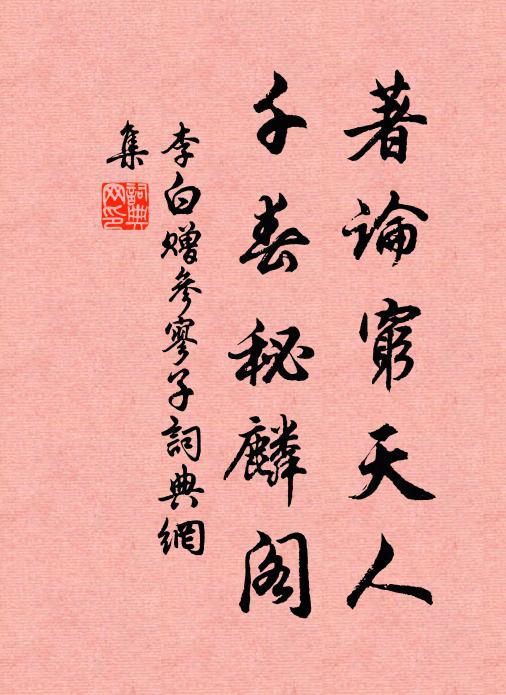 著論窮天人
千春秘麟閣
李白贈參寥子詞典網
集
詞典
网印